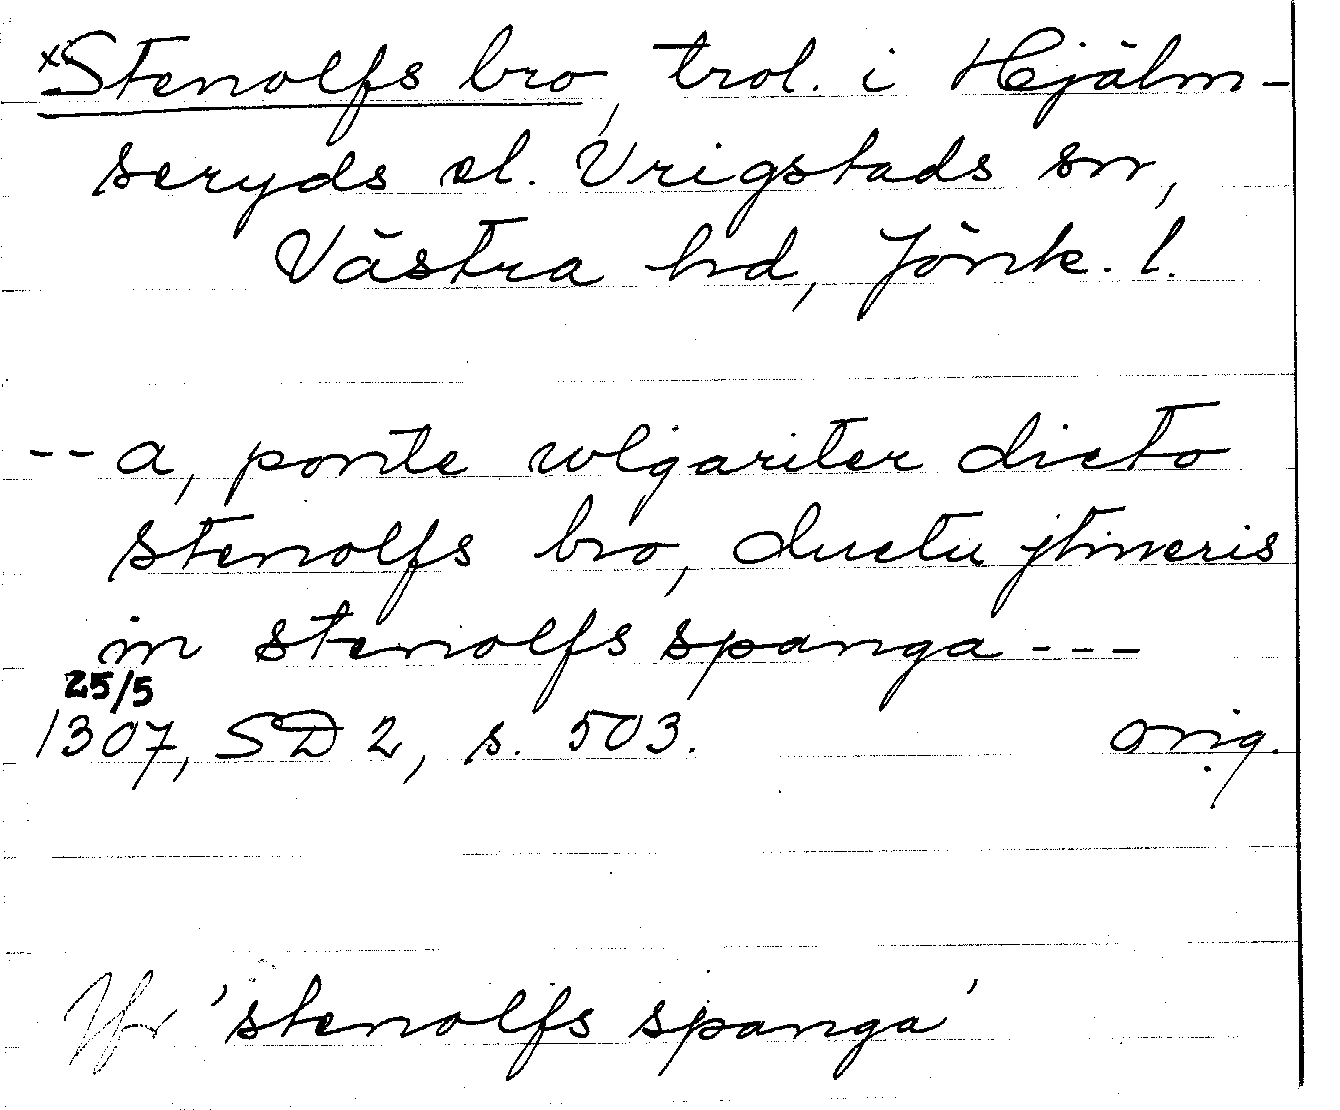 xStenolfs bro, trol. i Hjälm-
seryds el. Vrigstads sn,
Västra hd, Jönk. l.
-- a, ponte wlgariter dicto
stenolfs bro, ductu jtineris
in stenolfs spanga ---
25/5
1307, SD 2, s. 503. orig.
Jfr 'stenolfs spanga'